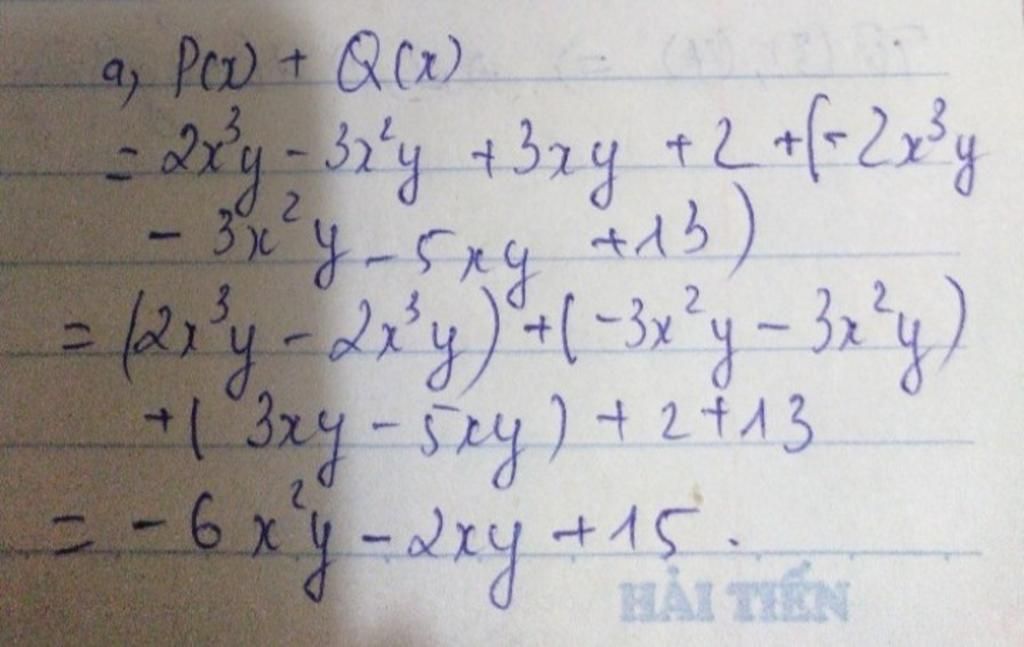 a, P(x) + Q(x)
= 2x³y - 3x²y + 3xy + 2 + (-2x³y
- 3x²y - 5xy + 13)
= (2x³y - 2x³y) + (-3x²y - 3x²y)
+ ( 3xy - 5xy) + 2 + 13
= - 6x²y - 2xy + 15.
HẢI TIẾN